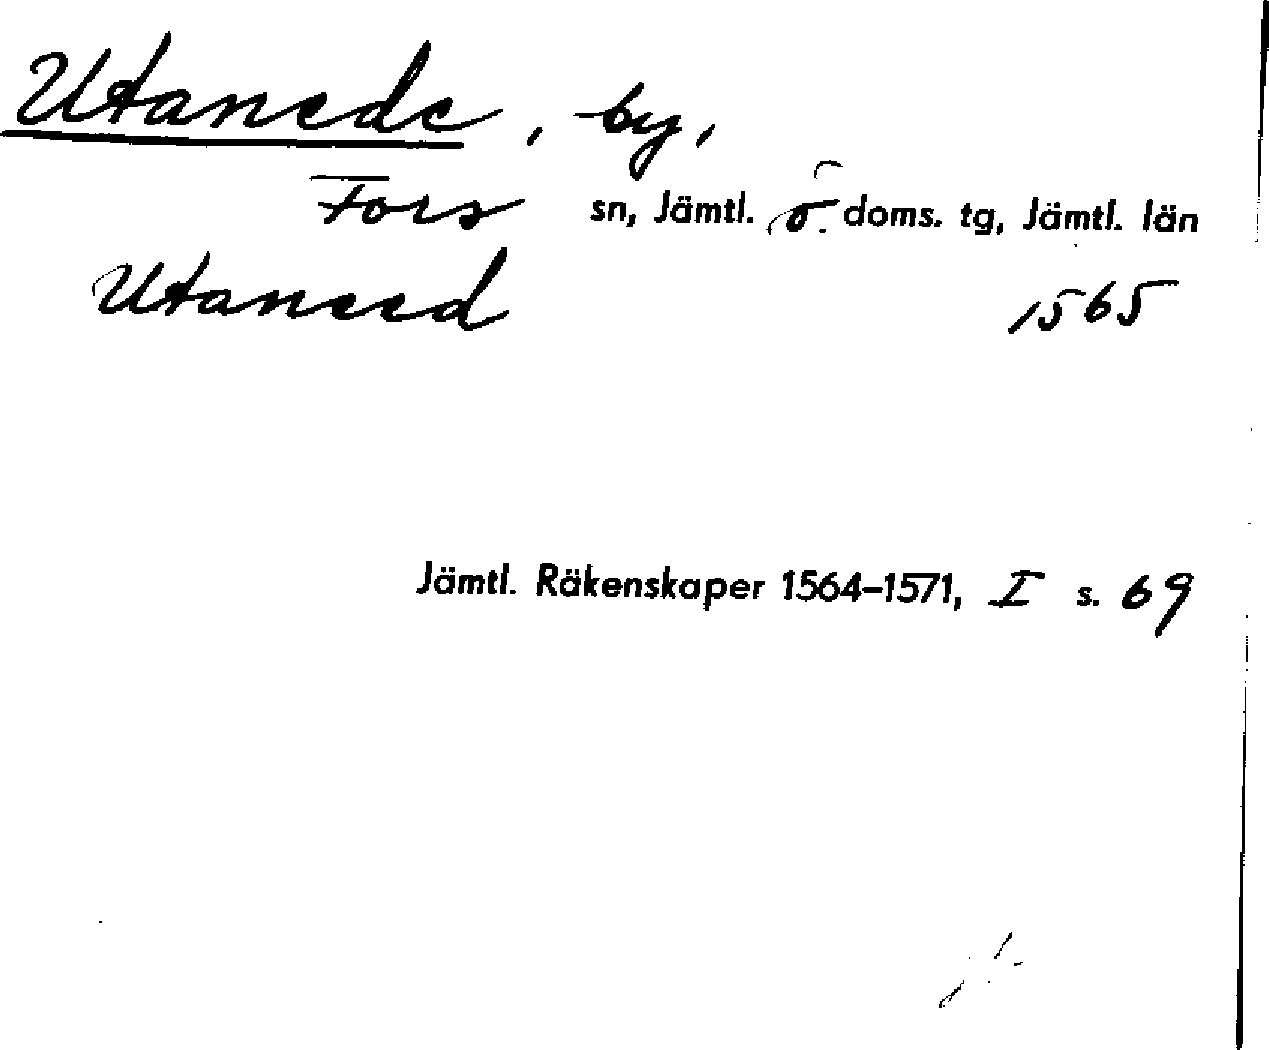 Utanede, by,
Fors sn, Jämtl. ö. doms. tg, Jämtl. län
Utaneed 1565
Jämtl. Räkenskaper 1564–1571, I s. 69